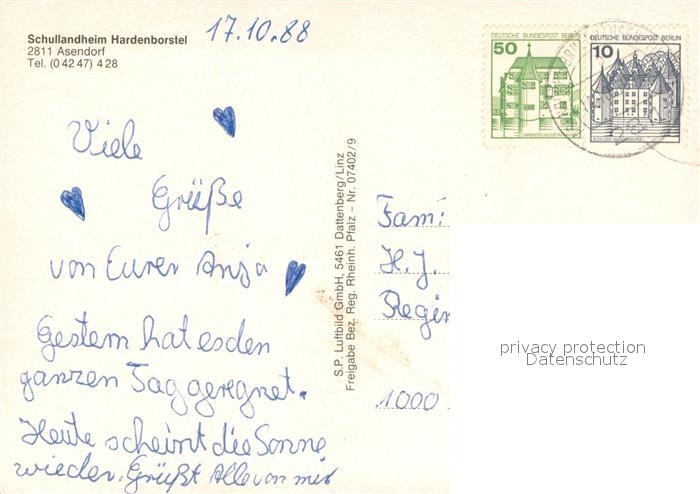 Schullandheim Hardenborstel
2811 Asendorf
Tel. (0 42 47) 4 28
17.10.88
DEUTSCHE BUNDESPOST BERLIN
50
DEUTSCHE BUNDESPOST BERLIN
10
Viele
Grüße
von Eurer Anja
Gestern hat es den
ganzen Tag geregnet.
Heute scheint die Sonne
wieder. Grüßt Alle von mir
S.P. Luftbild GmbH, 5461 Dattenberg/Linz
Freigabe Bez. Reg. Rheinh. Pfalz – Nr. 07402/9
Fam:
H. J.
Regin
1000
privacy protection
Datenschutz